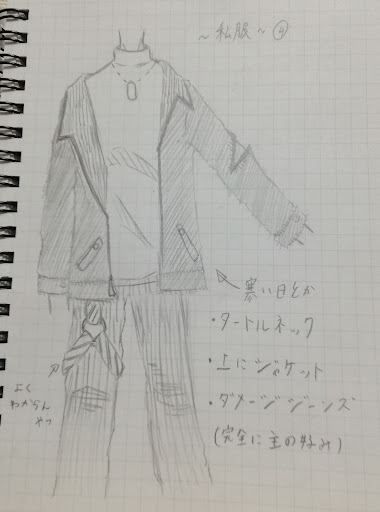 ~私服~④
寒い日とか
・タートルネック
・上にジャケット
・ダメージジーンズ
(完全に主の好み)
よく
わからん
やつ